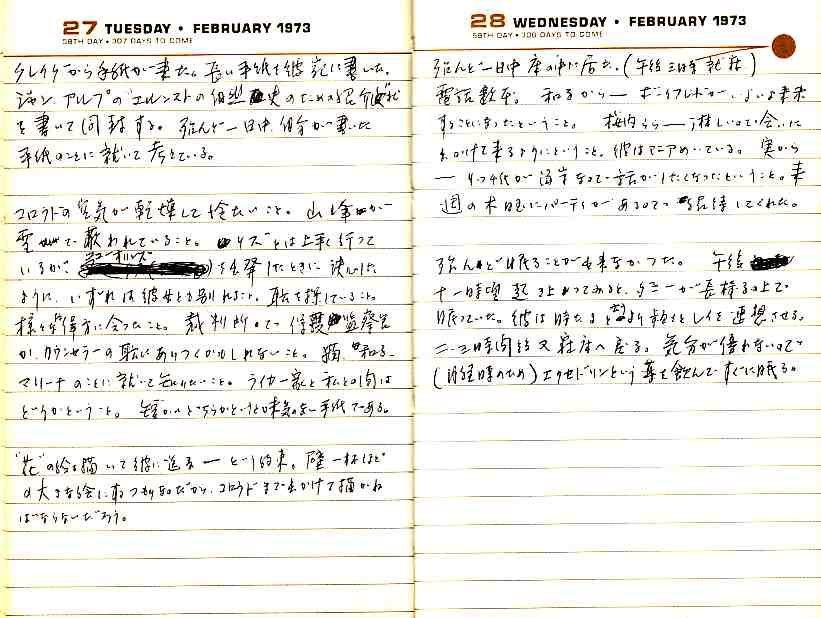 27 TUESDAY • FEBRUARY 1973
58TH DAY • 307 DAYS TO COME
クレイグから手紙が来た。長い手紙を彼宛に書いた。
ジャン アルプの エルンストの
を書いて同封する。殆んど一日中、自分が書いた
手紙のことに就いて考えている。
コロラドの空気が乾燥して冷たいこと。山峰が
雪で蔽われていること。リズとは上手く行って
いるが、を出発したときに決心した
ように、いずれは彼女とも別れること。職を探していること。
様な人達に会ったこと。裁判所で保護監察官
か、カウンセラーの職にありつくかもしれないこと。猫、和子、
マリーナのことに就いて知りたいこと。ライカー家と私との間は
どうかということ。短かいどちらかというと味気のない手紙である。
"花"の絵を描いて彼に送る — という約束。壁一杯ほど
の大きな絵にするつもりなのだから、コロラドまで出かけて描かね
ばならないだろう。
28 WEDNESDAY • FEBRUARY 1973
59TH DAY • 306 DAYS TO COME
殆んど一日中 床の中に居た。(午後三時就床)
電話数本。和子から — ボーイフレンドが、いよいよ来
することになったということ。 — 淋しいので会いに
出かけて来るようにということ。彼はマニアめいている。実から
— 話がしたくなったということ。来
週の木曜にパーティがあるので招待してくれた。
殆んど眠ることが出来なかった。午後
十一時半起き上ってみると、が長椅子の上で
眠っていた。彼は時たまレイを連想させる。
二、三時間後又寝床へ戻る。気分が優れないので
(月経時のため)エクセドリンという薬を飲んで すぐに眠る。